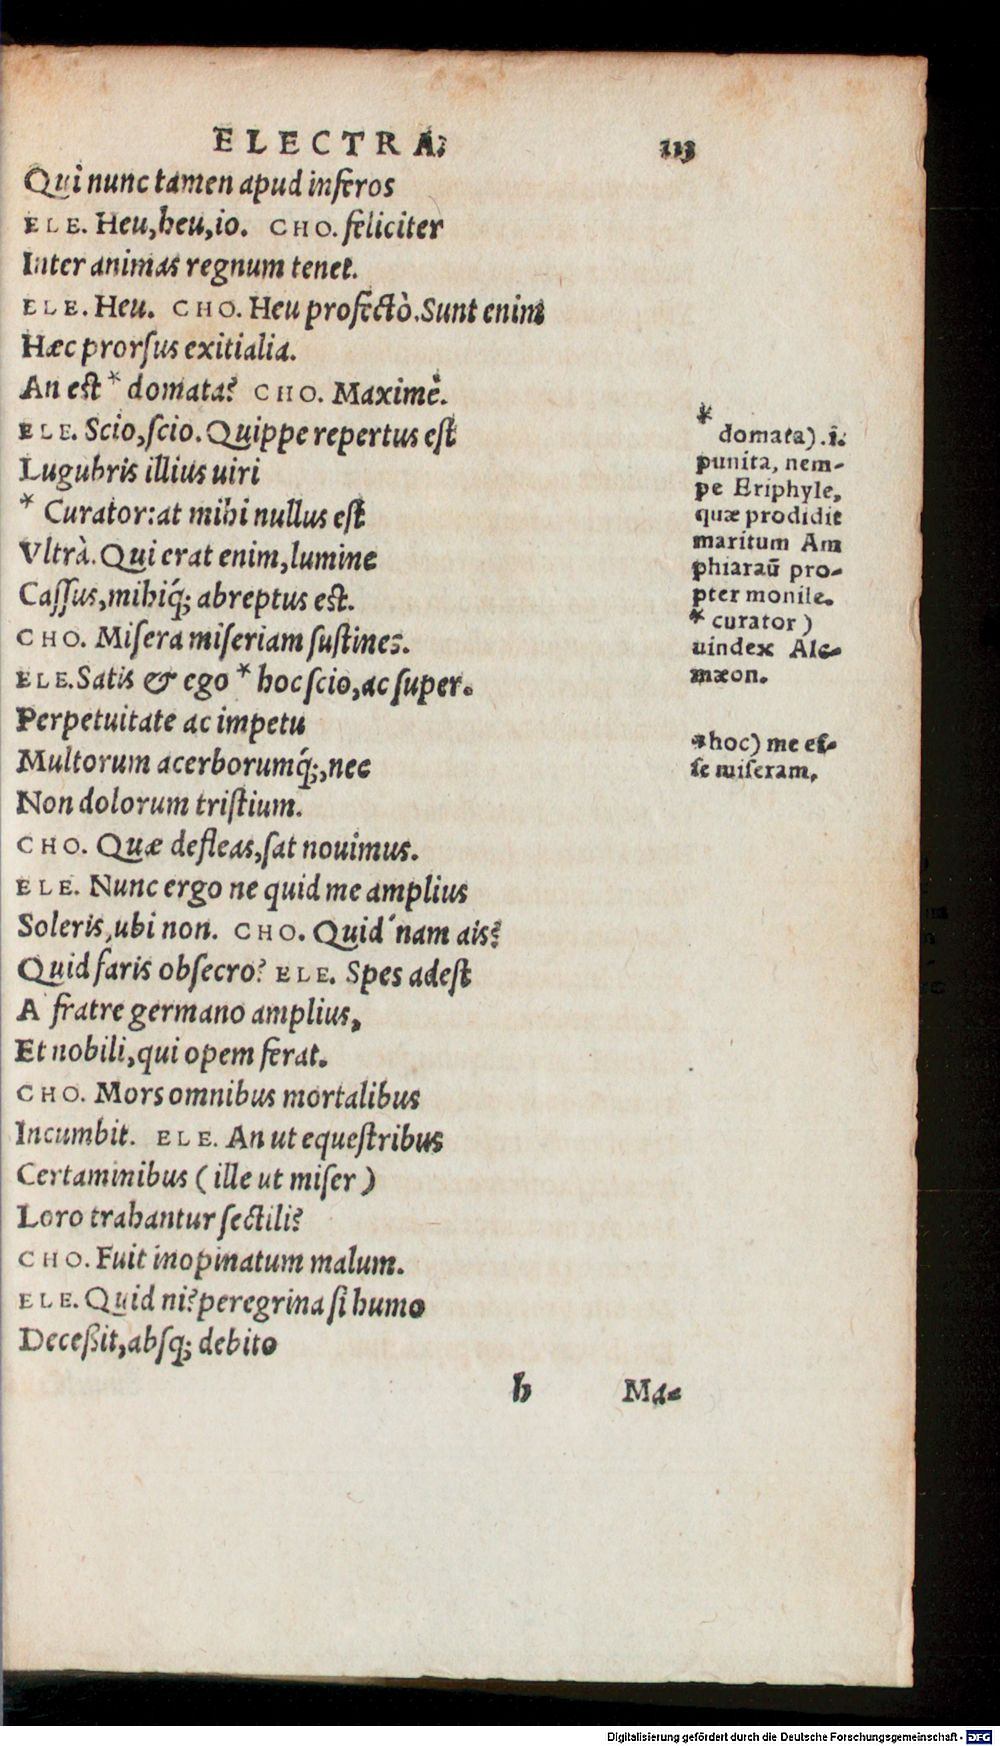 ELECTRA. 113
Qui nunc tamen apud inferos
ELE. Heu,heu,io. CHO. feliciter
Inter animas regnum tenet.
ELE. Heu. CHO. Heu profectò.Sunt enim
Hæc prorſus exitialia.
An eſt * domata? CHO. Maximè.
ELE. Scio,ſcio. Quippe repertus eſt
Lugubris illius uiri
* Curator:at mihi nullus eſt
Vltrà. Qui erat enim,lumine
Caſſus,mihiq́; abreptus eſt.
CHO. Miſera miſeriam ſuſtines.
ELE. Satis & ego * hoc ſcio,ac ſuper.
Perpetuitate ac impetu
Multorum acerborumq́;,nec
Non dolorum triſtium.
CHO. Quæ defleas,ſat nouimus.
ELE. Nunc ergo ne quid me amplius
Soleris,ubi non. CHO. Quid´nam ais?
Quid faris obſecro? ELE. Spes adeſt
A fratre germano amplius,
Et nobili,qui opem ferat.
CHO. Mors omnibus mortalibus
Incumbit. ELE. An ut equeſtribus
Certaminibus ( ille ut miſer )
Loro trahantur ſectili?
CHO. Fuit inopinatum malum.
ELE. Quid ni?peregrina ſi humo
Deceßit,abſq; debito
h Ma-
*
domata) .i.
punita, nem-
pe Eriphyle,
quæ prodidit
maritum Am
phiaraũ pro-
pter monile.
* curator )
uindex Alc-
mæon.
*hoc) me eſ-
ſe miſeram.
Digitalisierung gefördert durch die Deutsche Forschungsgemeinschaft - DFG